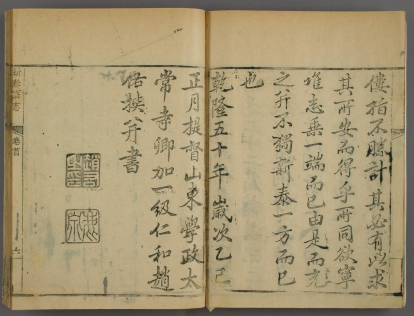 僂指不勝計其必有以求
其所安而得乎所同欲寧
惟志乗一端而已由是而充
之并不獨新泰一方而已
也
乾隆五十年歲次乙巳
正月提督山東學政太
常寺卿加一級仁和趙
佑撰并書
卷首
六